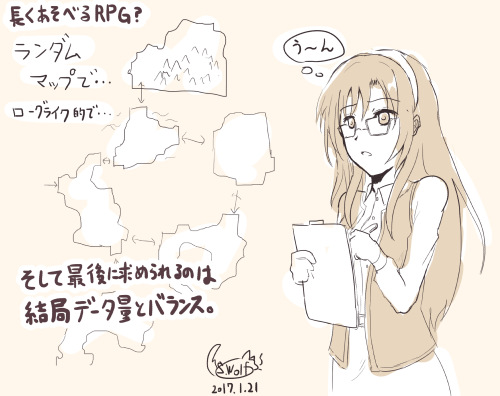 長くあそべるRPG?
ランダム
マップで…
ローグライク的で…
う〜ん
そして最後に求められるのは
結局データ量とバランス。
Wolf
2017.1.21